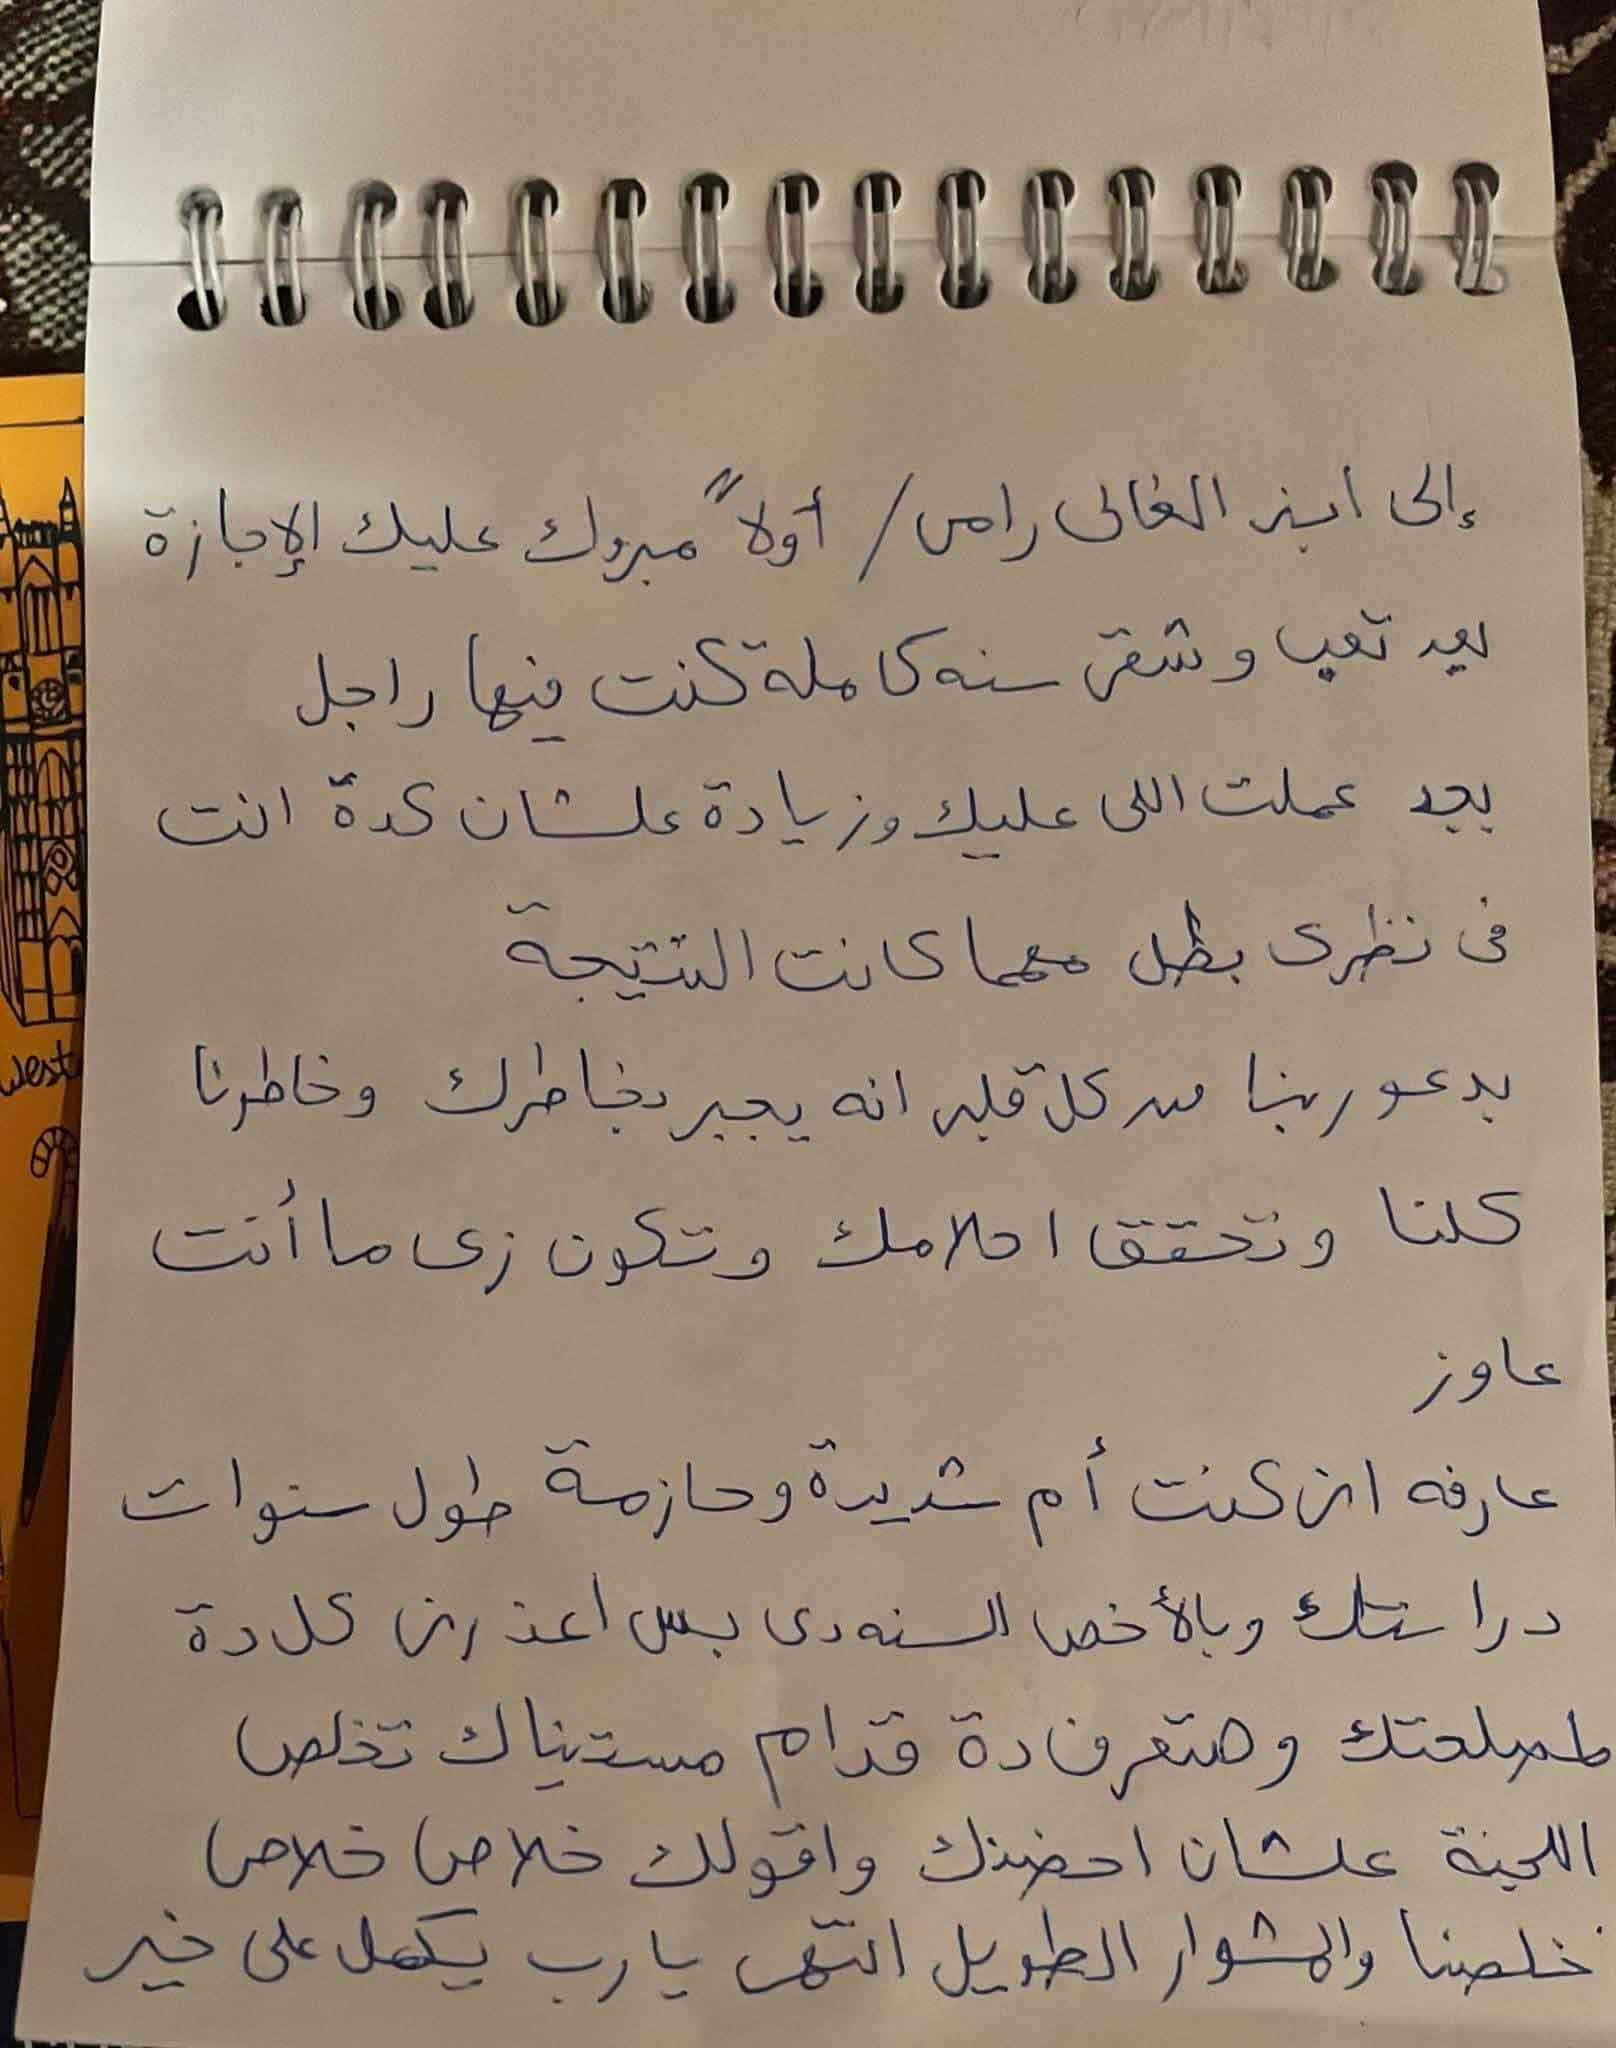 إلى ابنى الغالى رامى / أولاً مبروك عليك الإجازة
بعد تعب وشقى سنه كاملة كنت فيها راجل
بجد عملت اللى عليك وزيادة علشان كدة انت
فى نظرى بطل مهما كانت النتيجة
بدعو ربنا من كل قلبى انه يجبر بخاطرك وخاطرنا
كلنا وتحقق احلامك وتكون زى ما أنت
عاوز
عارفه انى كنت أم شديدة وحازمة طول سنوات
دراستك وبالأخص السنه دى بس اعذرنى كل دة
لمصلحتك وهتعرف دة قدام مستنياك تخلص
اللجنة علشان احضنك واقولك خلاص خلاص
خلصنا والمشوار الطويل انتهى يارب يكمل على خير
West